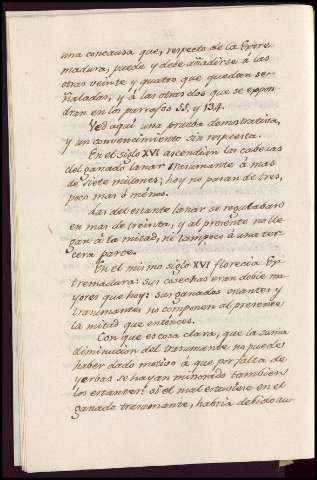 una concausa que, respecto de la Extre
madura, puede y debe añadirse á las
otras veinte y quatro que quedan se
ñaladas, y á las otras dos que se expon
dran en los parrafos 55, y 134.
Ved aqui una prueba demostrativa,
y un convencimiento sin respuesta.
En el siglo XVI ascendien las cabezas
del ganado lanar trasumante á mas
de siete millones; hoy no pasan de tres,
poco mas ó menos.
Las del estante lanar se regulaban
en mas de treinta, y al presente no lle
gan á la mitad, ni tampoco á una ter
cera parte.
En el mismo siglo XVI florecia Ex
tremadura: sus cosechas eran doble ma
yores que hoy: sus ganados estantes y
trasumantes no componen al presente
la mitad que entonces.
Con que es cosa clara, que la suma
diminucion del trasumante no puede
haber dado motivo á que por falta de
yerbas se hayan minorado tambien
los estantes: si el mal estuviese en el
ganado trasumante, habria debido au